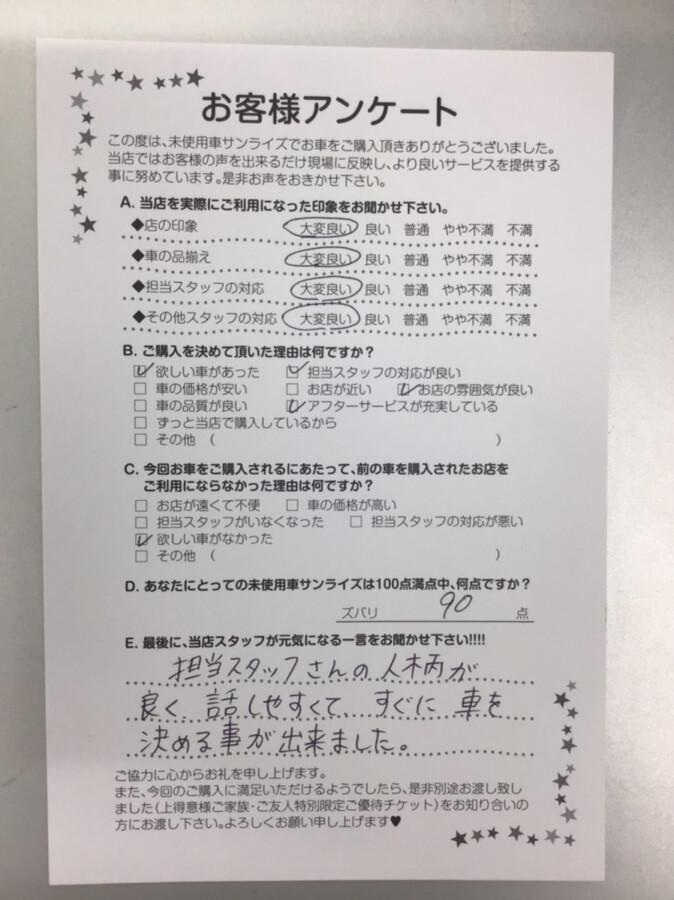 お客様アンケート
この度は、未使用車サンライズでお車をご購入頂きありがとうございました。
当店ではお客様の声を出来るだけ現場に反映し、より良いサービスを提供する
事に努めています。是非お声をおきかせ下さい。
A. 当店を実際にご利用になった印象をお聞かせ下さい。
◆店の印象 大変良い 良い 普通 やや不満 不満
◆車の品揃え 大変良い 良い 普通 やや不満 不満
◆担当スタッフの対応 大変良い 良い 普通 やや不満 不満
◆その他スタッフの対応 大変良い 良い 普通 やや不満 不満
B. ご購入を決めて頂いた理由は何ですか?
☑ 欲しい車があった ☑ 担当スタッフの対応が良い
□ 車の価格が安い □ お店が近い ☑ お店の雰囲気が良い
□ 車の品質が良い ☑ アフターサービスが充実している
□ ずっと当店で購入しているから
□ その他 ( )
C. 今回お車をご購入されるにあたって、前の車を購入されたお店を
ご利用にならなかった理由は何ですか?
□ お店が遠くて不便 □ 車の価格が高い
□ 担当スタッフがいなくなった □ 担当スタッフの対応が悪い
☑ 欲しい車がなかった
□ その他 ( )
D. あなたにとっての未使用車サンライズは100点満点中、何点ですか?
ズバリ 90 点
E. 最後に、当店スタッフが元気になる一言をお聞かせ下さい!!!!
担当スタッフさんの人柄が
良く、話しやすくて、すぐに車を
決める事が出来ました。
ご協力に心からお礼を申し上げます。
また、今回のご購入に満足いただけるようでしたら、是非別途お渡し致し
ました(上得意様ご家族・ご友人特別限定ご優待チケット)をお知り合いの
方にお渡し下さい。よろしくお願い申し上げます♥